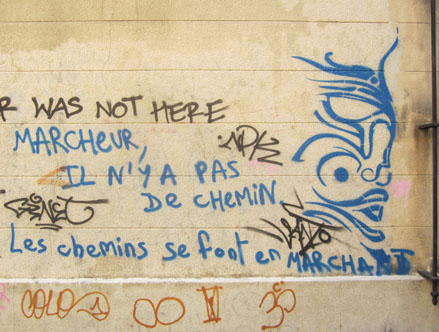 R WAS NOT HERE
MARCHEUR,
IL N'Y A PAS
DE CHEMIN
Les chemins se font en MARCHANT
COLO